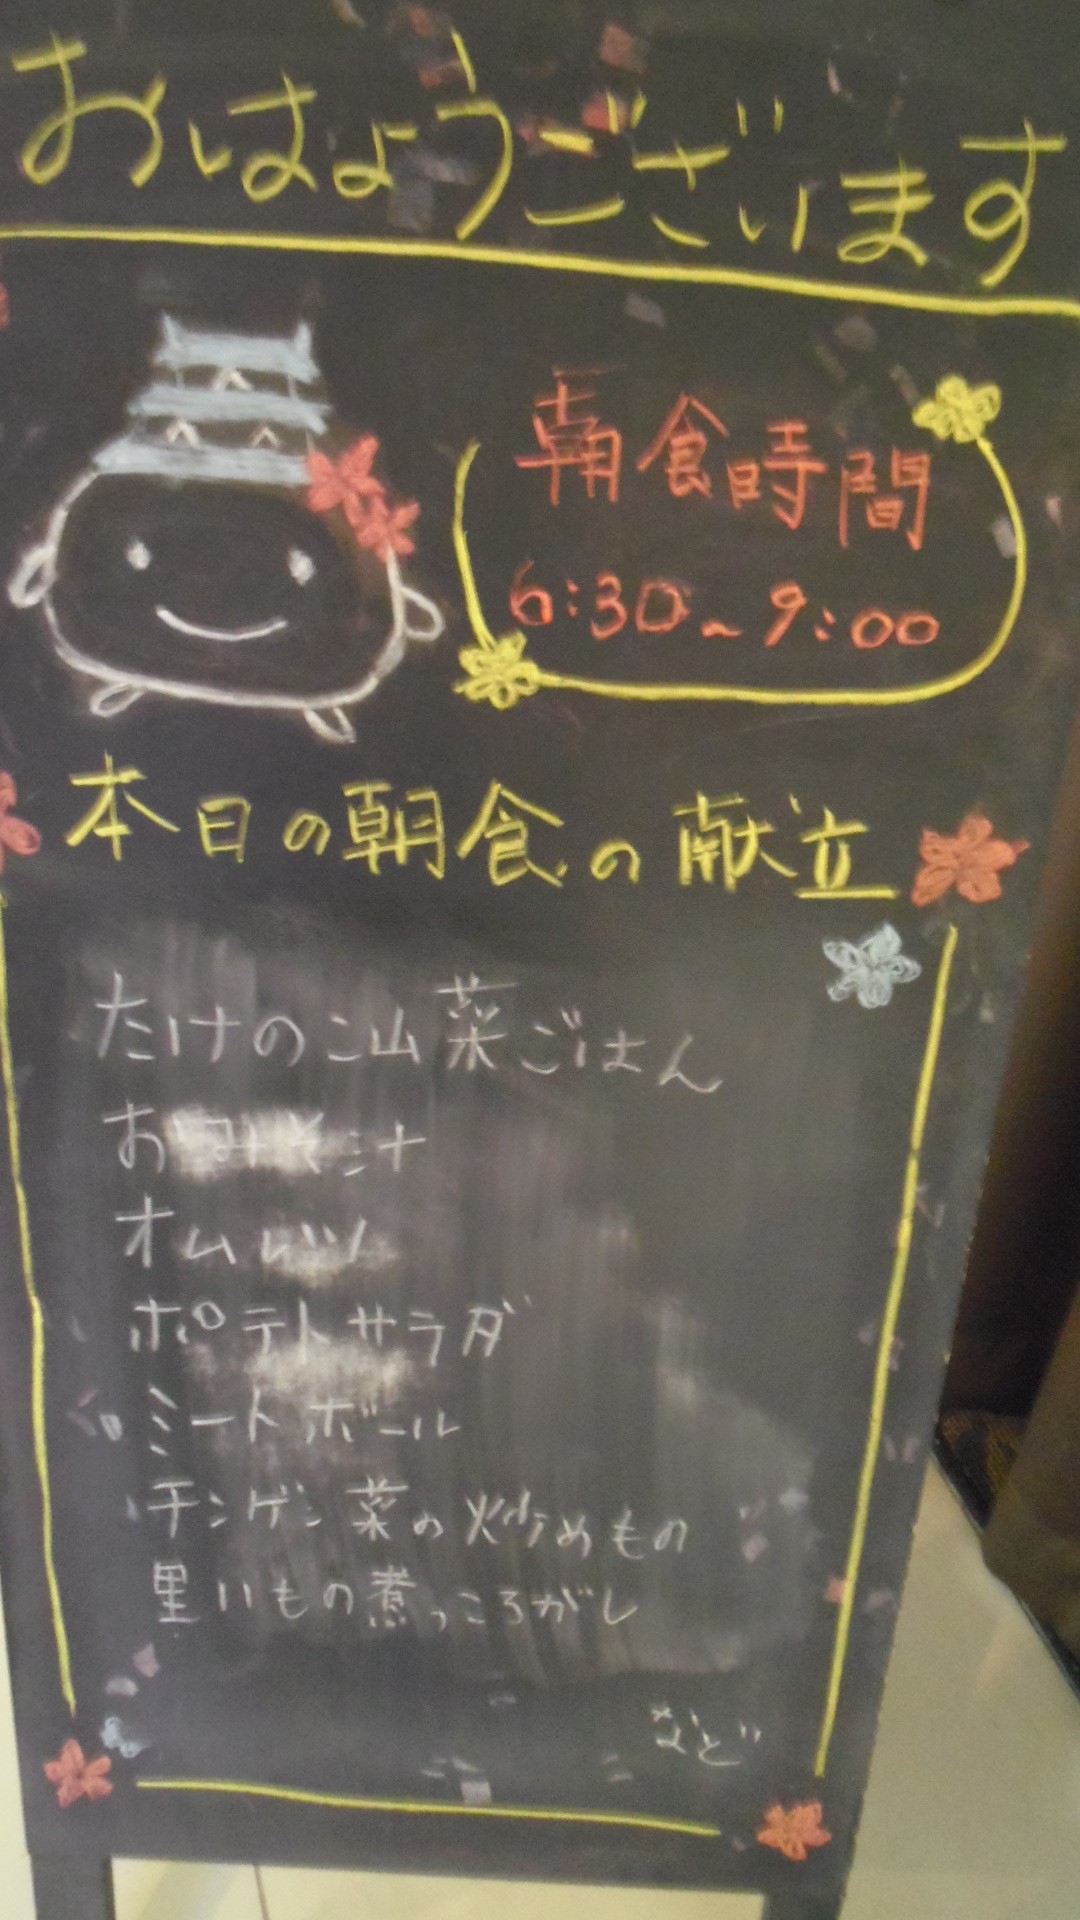 おはようございます
朝食時間
6:30~9:00
本日の朝食の献立
たけのこ山菜ごはん
おみそ汁
オムレツ
ポテトサラダ
ミートボール
チンゲン菜の炒めもの
里いもの煮っころがし
など